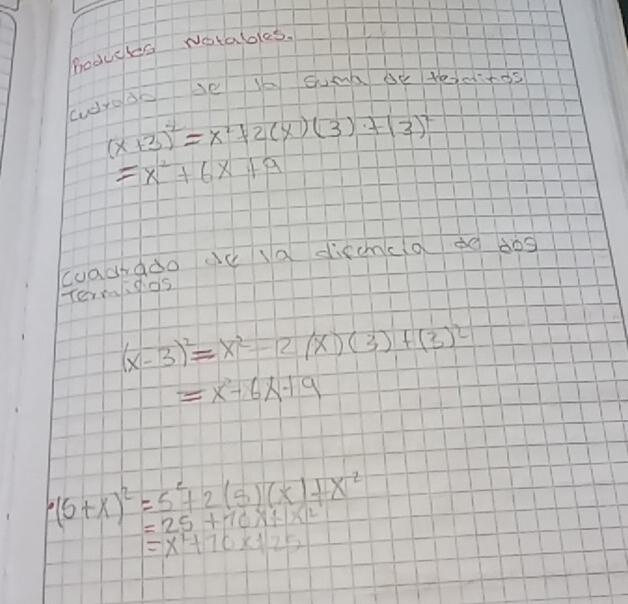 Productos Notables.
cuadrado de la suma de terminos
(x+3)² = x²+2(x)(3)+(3)²
= x²+6x+9
cuadrado de la disencia de dos
Terminos
(x-3)² = x²-2(x)(3)+(3)²
= x²-6x+9
•(5+x)² = 5²+2(5)(x)+x²
= 25+10x+x²
= x²+10x+25